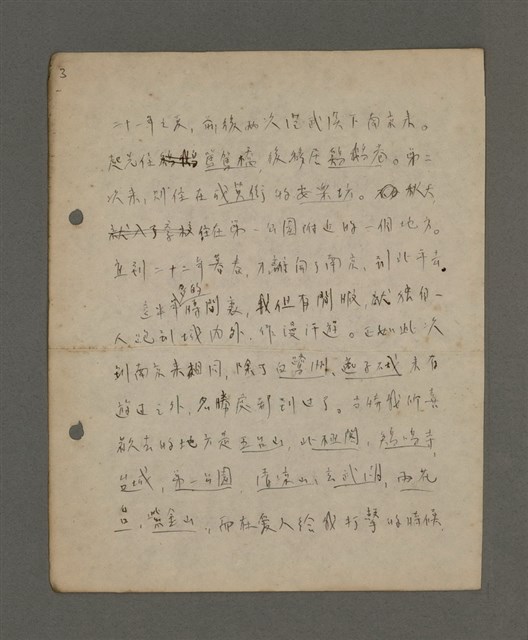 3
二十一年之末，前後兩次從武漢下南京去。
起先住鴛鴦橋，後轉居鵝鵝巷。第二
次來，則住在成賢街的安樂坊。
住在第一公園附近的一個地方。
直到二十二年暮春，才離開了南京，到北平去。
這半年多的時間裏，我但有閒暇，就獨自一
人跑到城內外，作漫汗遊。正如此次
到南京來相同，除了白鷺洲、燕子磯未有
遊過之外，名勝處都到過了。當時我所喜
歡去的地方是五台山，北極閣，鷄鳴寺，
台城，第一公園，清涼山，玄武湖，雨花
台，紫金山，而在愛人給我打擊的時候，